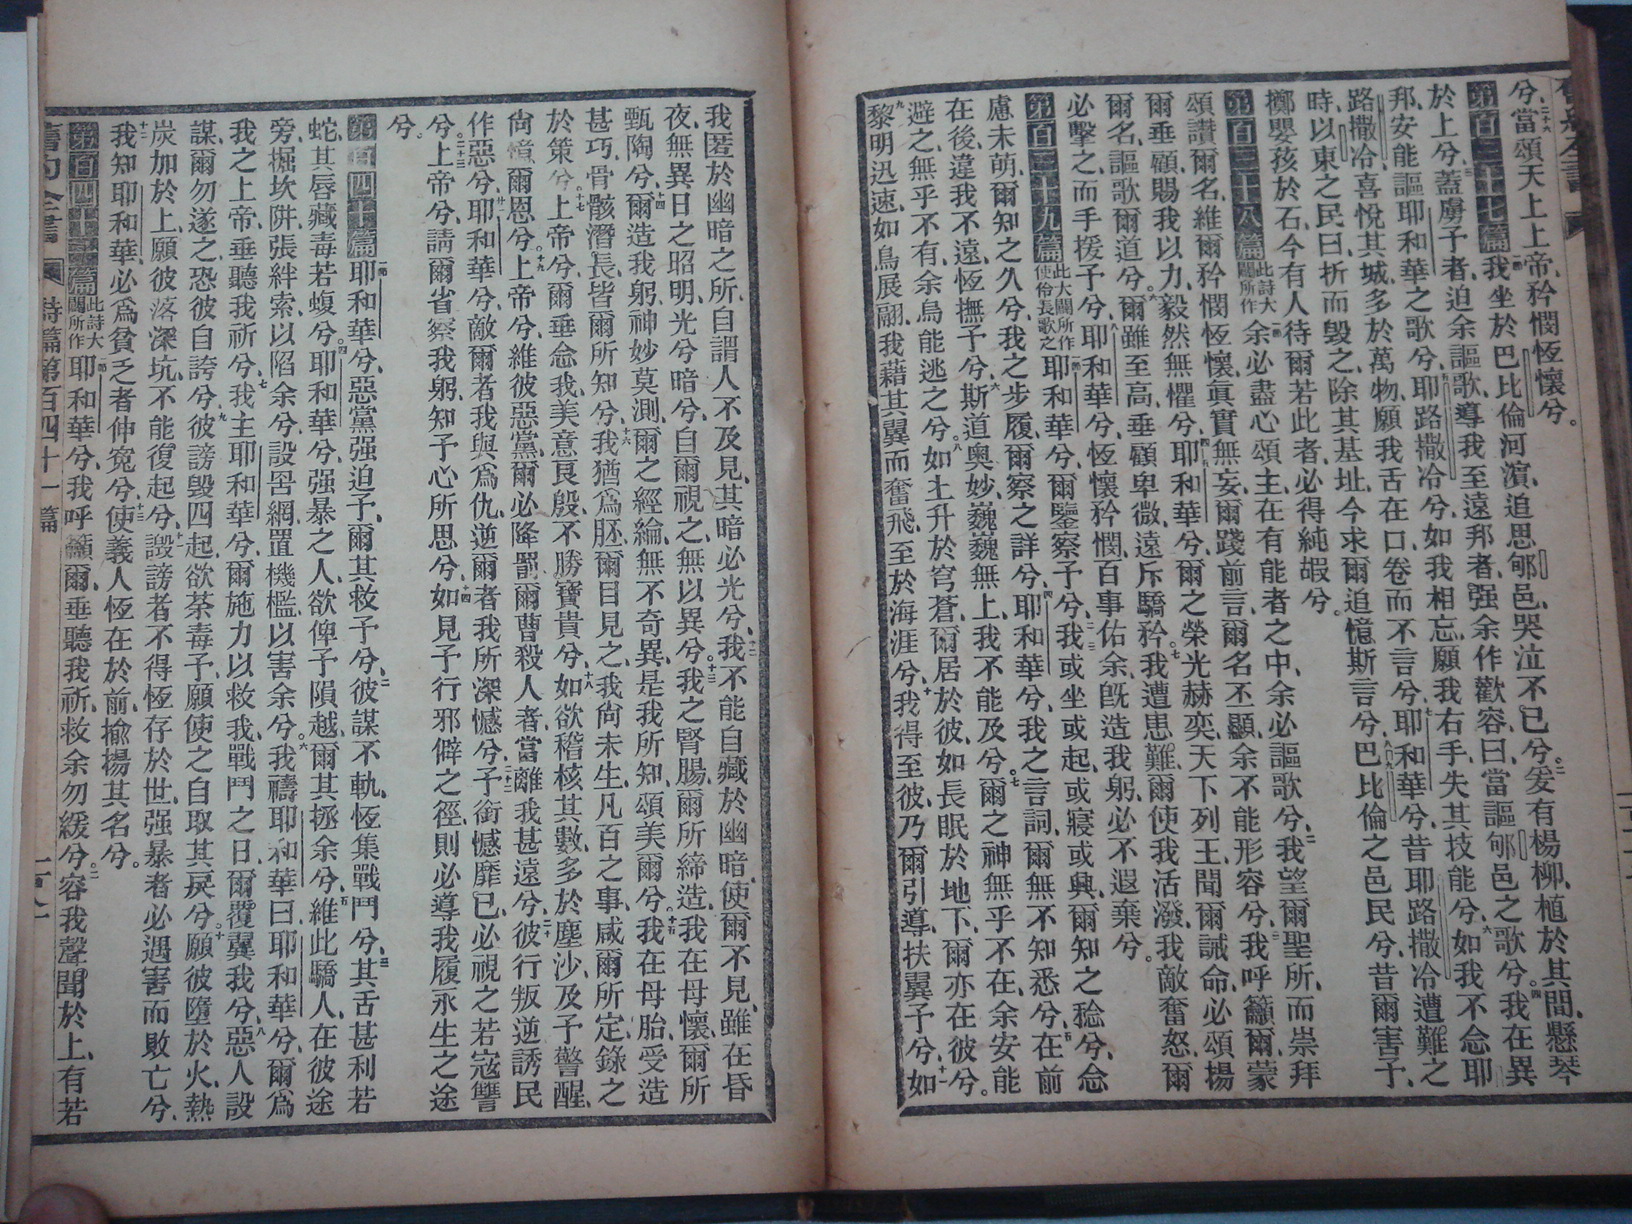 兮、二十六當頌天上上帝、矜憫恆懷兮。
第百三十七篇 一節我坐於巴比倫河濱、追思郇邑、哭泣不已兮。二爰有楊柳、植於其間、懸琴
於上兮、三蓋虜予者、迫余謳歌、導我至遠邦者、强余作歡容、曰、當謳郇邑之歌兮。四我在異
邦、安能謳耶和華之歌兮、五耶路撒冷兮、如我相忘、願我右手、失其技能兮、六如我不念耶
路撒冷、喜悅其城、多於萬物、願我舌在口、卷而不言兮、七耶和華兮、昔耶路撒冷遭難之
時、以東之民曰、折而毀之、除其基址、今求爾追憶斯言兮、八巴比倫之邑民兮、昔爾害予、
擲嬰孩於石、今有人待爾若此者、必得純嘏兮。
第百三十八篇 此詩大闢所作 一節余必盡心頌主、在有能者之中、余必謳歌兮、二我望爾聖所、而崇拜
頌讚爾名、維爾矜憫恆懷、眞實無妄、爾踐前言、爾名丕顯、余不能形容兮、三我呼籲爾、蒙
爾垂顧、賜我以力、毅然無懼兮、四耶和華兮、爾之榮光赫奕、天下列王、聞爾誡命、必頌揚
爾名、謳歌爾道兮。六爾雖至高、垂顧卑微、遠斥驕矜、七我遭患難、爾使我活潑、我敵奮怒、爾
必擊之、而手援予兮、八耶和華兮、恆懷矜憫、百事佑余、旣造我躬、必不遐棄兮。
第百三十九篇 此大闢所作使伶長歌之 一節耶和華兮、爾鑒察予兮、二我或坐或起、或寢或興、爾知之稔兮、念
慮未萌、爾知之久兮、三我之步履、爾察之詳兮、四耶和華兮、我之言詞、爾無不知悉兮、五在前
在後、違我不遠、恆撫予兮、六斯道奥妙、巍巍無上、我不能及兮。七爾之神無乎不在、余安能
避之、無乎不有、余烏能逃之兮。八如上升於穹蒼、爾居於彼、如長眠於地下、爾亦在彼兮。
九黎明迅速、如鳥展翮、我藉其翼而奮飛、至於海涯兮、十我得至彼、乃爾引導、扶翼予兮、十一如
我匿於幽暗之所、自謂人不及見、其暗必光兮、十二我不能自藏於幽暗、使爾不見、雖在昏
夜、無異日之昭明、光兮暗兮、自爾視之、無以異兮。十三我之腎腸、爾所締造、我在母懷、爾所
甄陶兮、十四爾造我躬、神妙莫測、爾之經綸、無不奇異、是我所知、頌美爾兮。十五我在母胎、受造
甚巧、骨骸潛長、皆爾所知兮、十六我猶爲胚、爾目見之、我尙未生、凡百之事、咸爾所定、錄之
於策兮。十七上帝兮、爾垂念我、美意良殷、不勝寶貴兮、十八如欲稽核其數、多於塵沙、及予警醒、
尙憶爾恩兮。十九上帝兮、維彼惡黨、爾必降罰、爾曹殺人者、當離我甚遠兮、二十彼行叛逆、誘民
作惡兮、廿一耶和華兮、敵爾者我與爲仇、逆爾者我所深憾兮、二十二予銜憾靡已、必視之若寇讐
兮。二十三上帝兮、請爾省察我躬、知予心所思兮、二十四如見予行邪僻之徑、則必導我履永生之途
兮。
第百四十篇 一節耶和華兮、惡黨强迫予、爾其救予兮、二彼謀不軌、恆集戰鬥兮、三其舌甚利若
蛇、其唇藏毒若蝮兮。四耶和華兮、强暴之人、欲俾予隕越、爾其拯余兮、五維此驕人、在彼途
旁、掘坎阱、張絆索、以陷余兮、設罟網、置機檻、以害余兮。六我禱耶和華曰、耶和華兮、爾爲
我之上帝、垂聽我祈兮、七我主耶和華兮、爾施力以救我、戰鬥之日、爾覆翼我兮、八惡人設
謀、爾勿遂之、恐彼自誇兮、九彼謗毀四起、欲荼毒予、願使之自取其戾兮。十願彼墮於火、熱
炭加於上、願彼落深坑、不能復起兮、十一譭謗者不得恆存於世、强暴者必遇害而敗亡兮、
十二我知耶和華、必爲貧乏者伸寃兮、十三使義人恆在於前、揄揚其名兮。
第百四十一篇 此詩大闢所作 一節耶和華兮、我呼籲爾、垂聽我祈、救余勿緩兮。二容我聲聞於上、有若
舊約全書 詩篇第百四十一篇